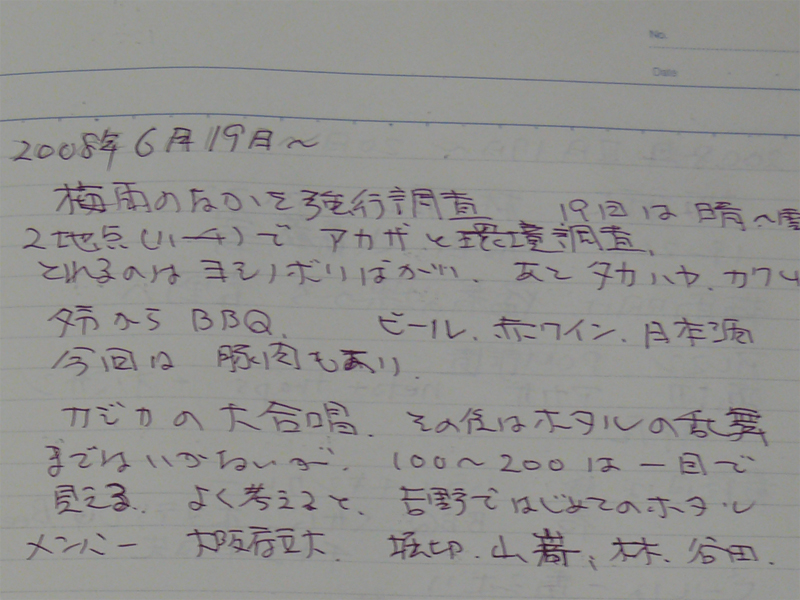 No.
Date
2008年6月19日〜
梅雨のなかを強行調査 19日は晴〜曇
2地点(ハ-4)で アカザと環境調査、
とれるのはヨシノボリばかり、あと タカハヤ、カワム
夕方から BBQ. ビール、赤ワイン、日本酒
今回は 豚肉もあり、
カジカの大合唱、その後はホタルの乱舞
まではいかないが、100〜200は一目で
見える、よく考えると、吉野ではじめてのホタル
メンバー 大阪府立大 堀、山嵜、林、谷田、